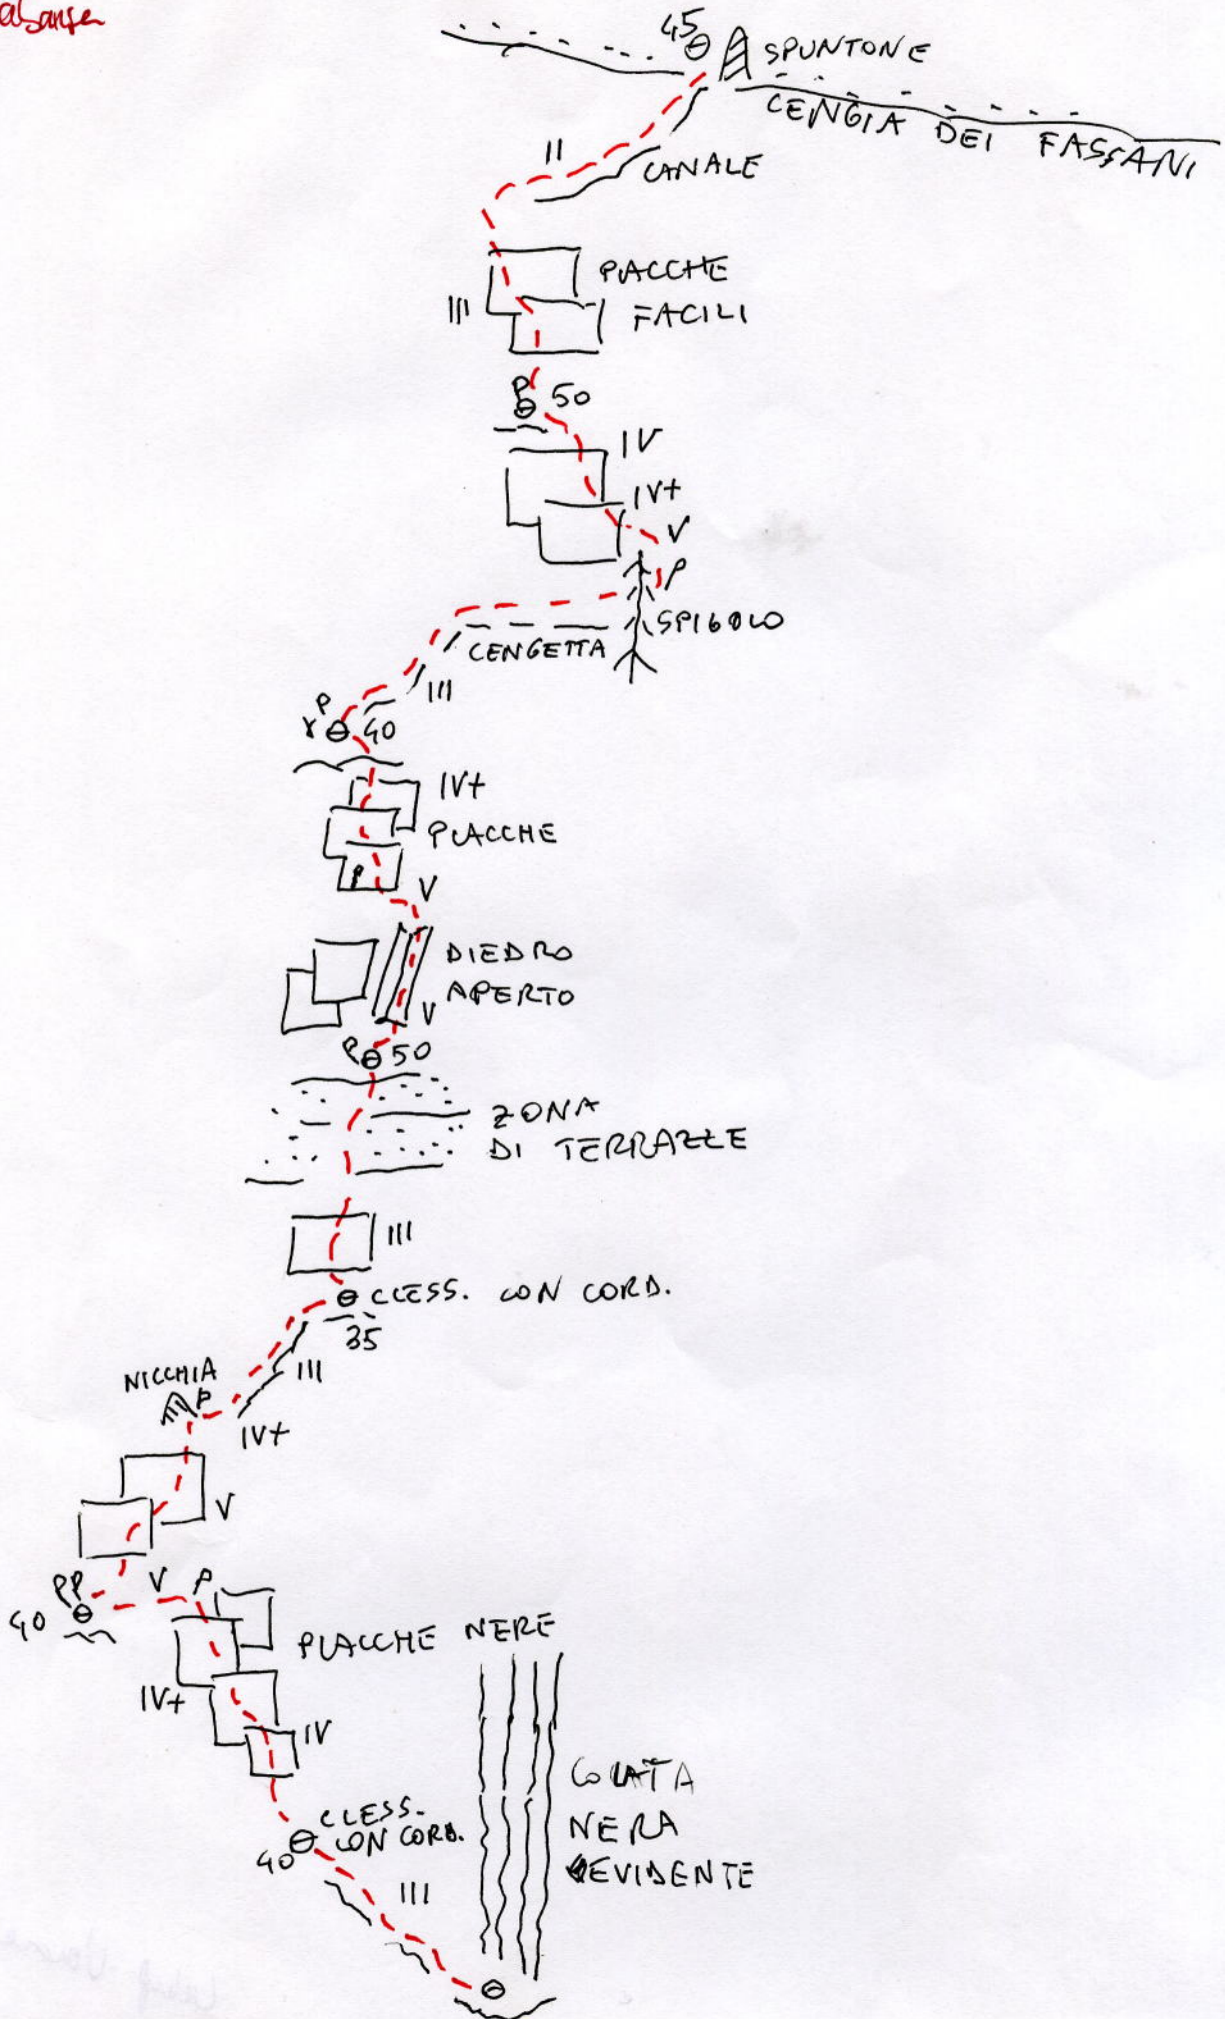 45
SPUNTONE
CENGIA DEI FASSANI
II
CANALE
PLACCHE
III
FACILI
P
50
IV
IV+
V
P
SPIGOLO
CENGETTA
III
P
40
IV+
PLACCHE
P
V
DIEDRO
APERTO
V
P 50
ZONA
DI TERRAZZE
III
CLESS. CON CORD.
35
NICCHIA
III
P
IV+
V
PP
V P
40
PLACCHE NERE
IV+
IV
COLATA
CLESS.
CON CORD.
NERA
40
EVIDENTE
III